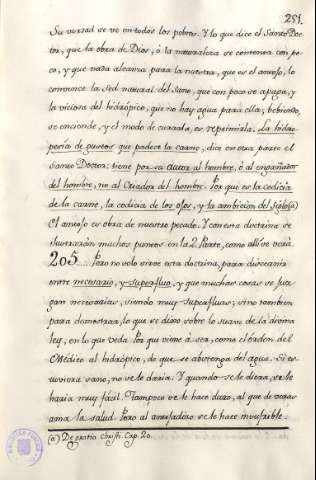 251.
Su verdad se ve en todos los pobres. Y lo que dice el Santo Doc-
tor, que la obra de Dios, ó la naturaleza se contenta con po-
co, y que nada alcanza para la nuestra, que es el antojo, lo
convence la sed natural del sano, que con poco se apaga, y
la viciosa del hidrópico, que no hay agua para ella; bebiendo,
se enciende, y el modo de curarla, es reprimirla. La hidro-
pesia de gustos que padece la carne, dice en otra parte el
Santo Doctor: tiene por su Autor al hombre, ó al engañador
del hombre, no al Criador del hombre. Porque es la codicia
de la carne, la codicia de los ojos, y la ambicion del siglo (a)
El antojo es obra de nuestro pecado. Y con esta doctrina se
ilustrarán muchos puntos en la 2 Parte, como allí se verá.
205... Pero no solo sirve esta doctrina, para discernir
entre necesario, y superfluo, y que muchas cosas se juz-
gan necesarias, siendo muy superfluas; sino tambien
para demostrar, lo que se dixo sobre lo suave de la divina
ley, en lo que veda. Por que viene á ser, como el órden del
Médico al hidrópico, de que se abstenga del agua. Si es-
tuviera sano, no se le daria. Y quando se le diera, se le
haria muy fácil. Tampoco se le hace duro, al que de veras
ama la salud. Pero al antojadizo se le hace insufrible.
(a) De gratia Christi. Cap. 20.